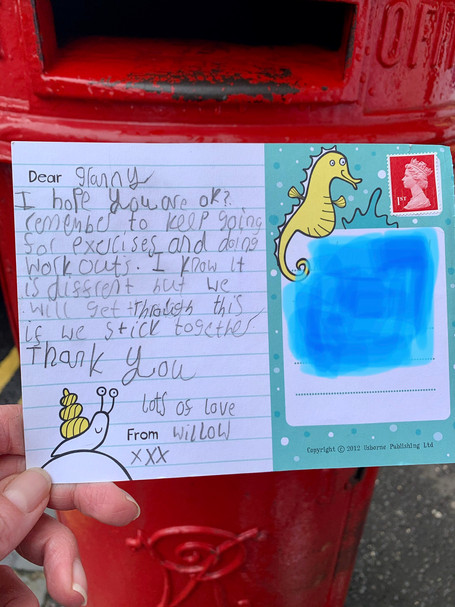 OFFI
Dear granny
I hope you are ok?
remember to keep going
for exercises and doing
work outs. I know it
is diffrent but we
will get through this
if we stick together
Thank you
lots of love
From Willow
xxx
1ST
Copyright © 2012 Usborne Publishing Ltd